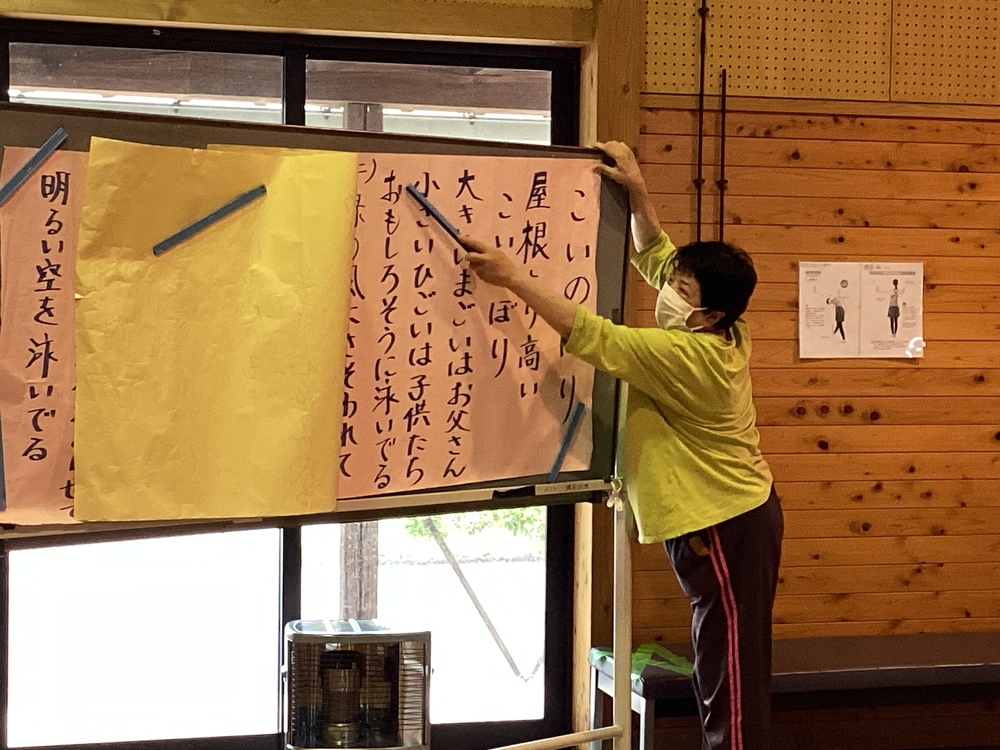 こいのぼり
屋根より高い
こいのぼり
大きいまごいはお父さん
小さいひごいは子供たち
おもしろそうに泳いでる
緑の風にさそわれて
明るい空を泳いでる